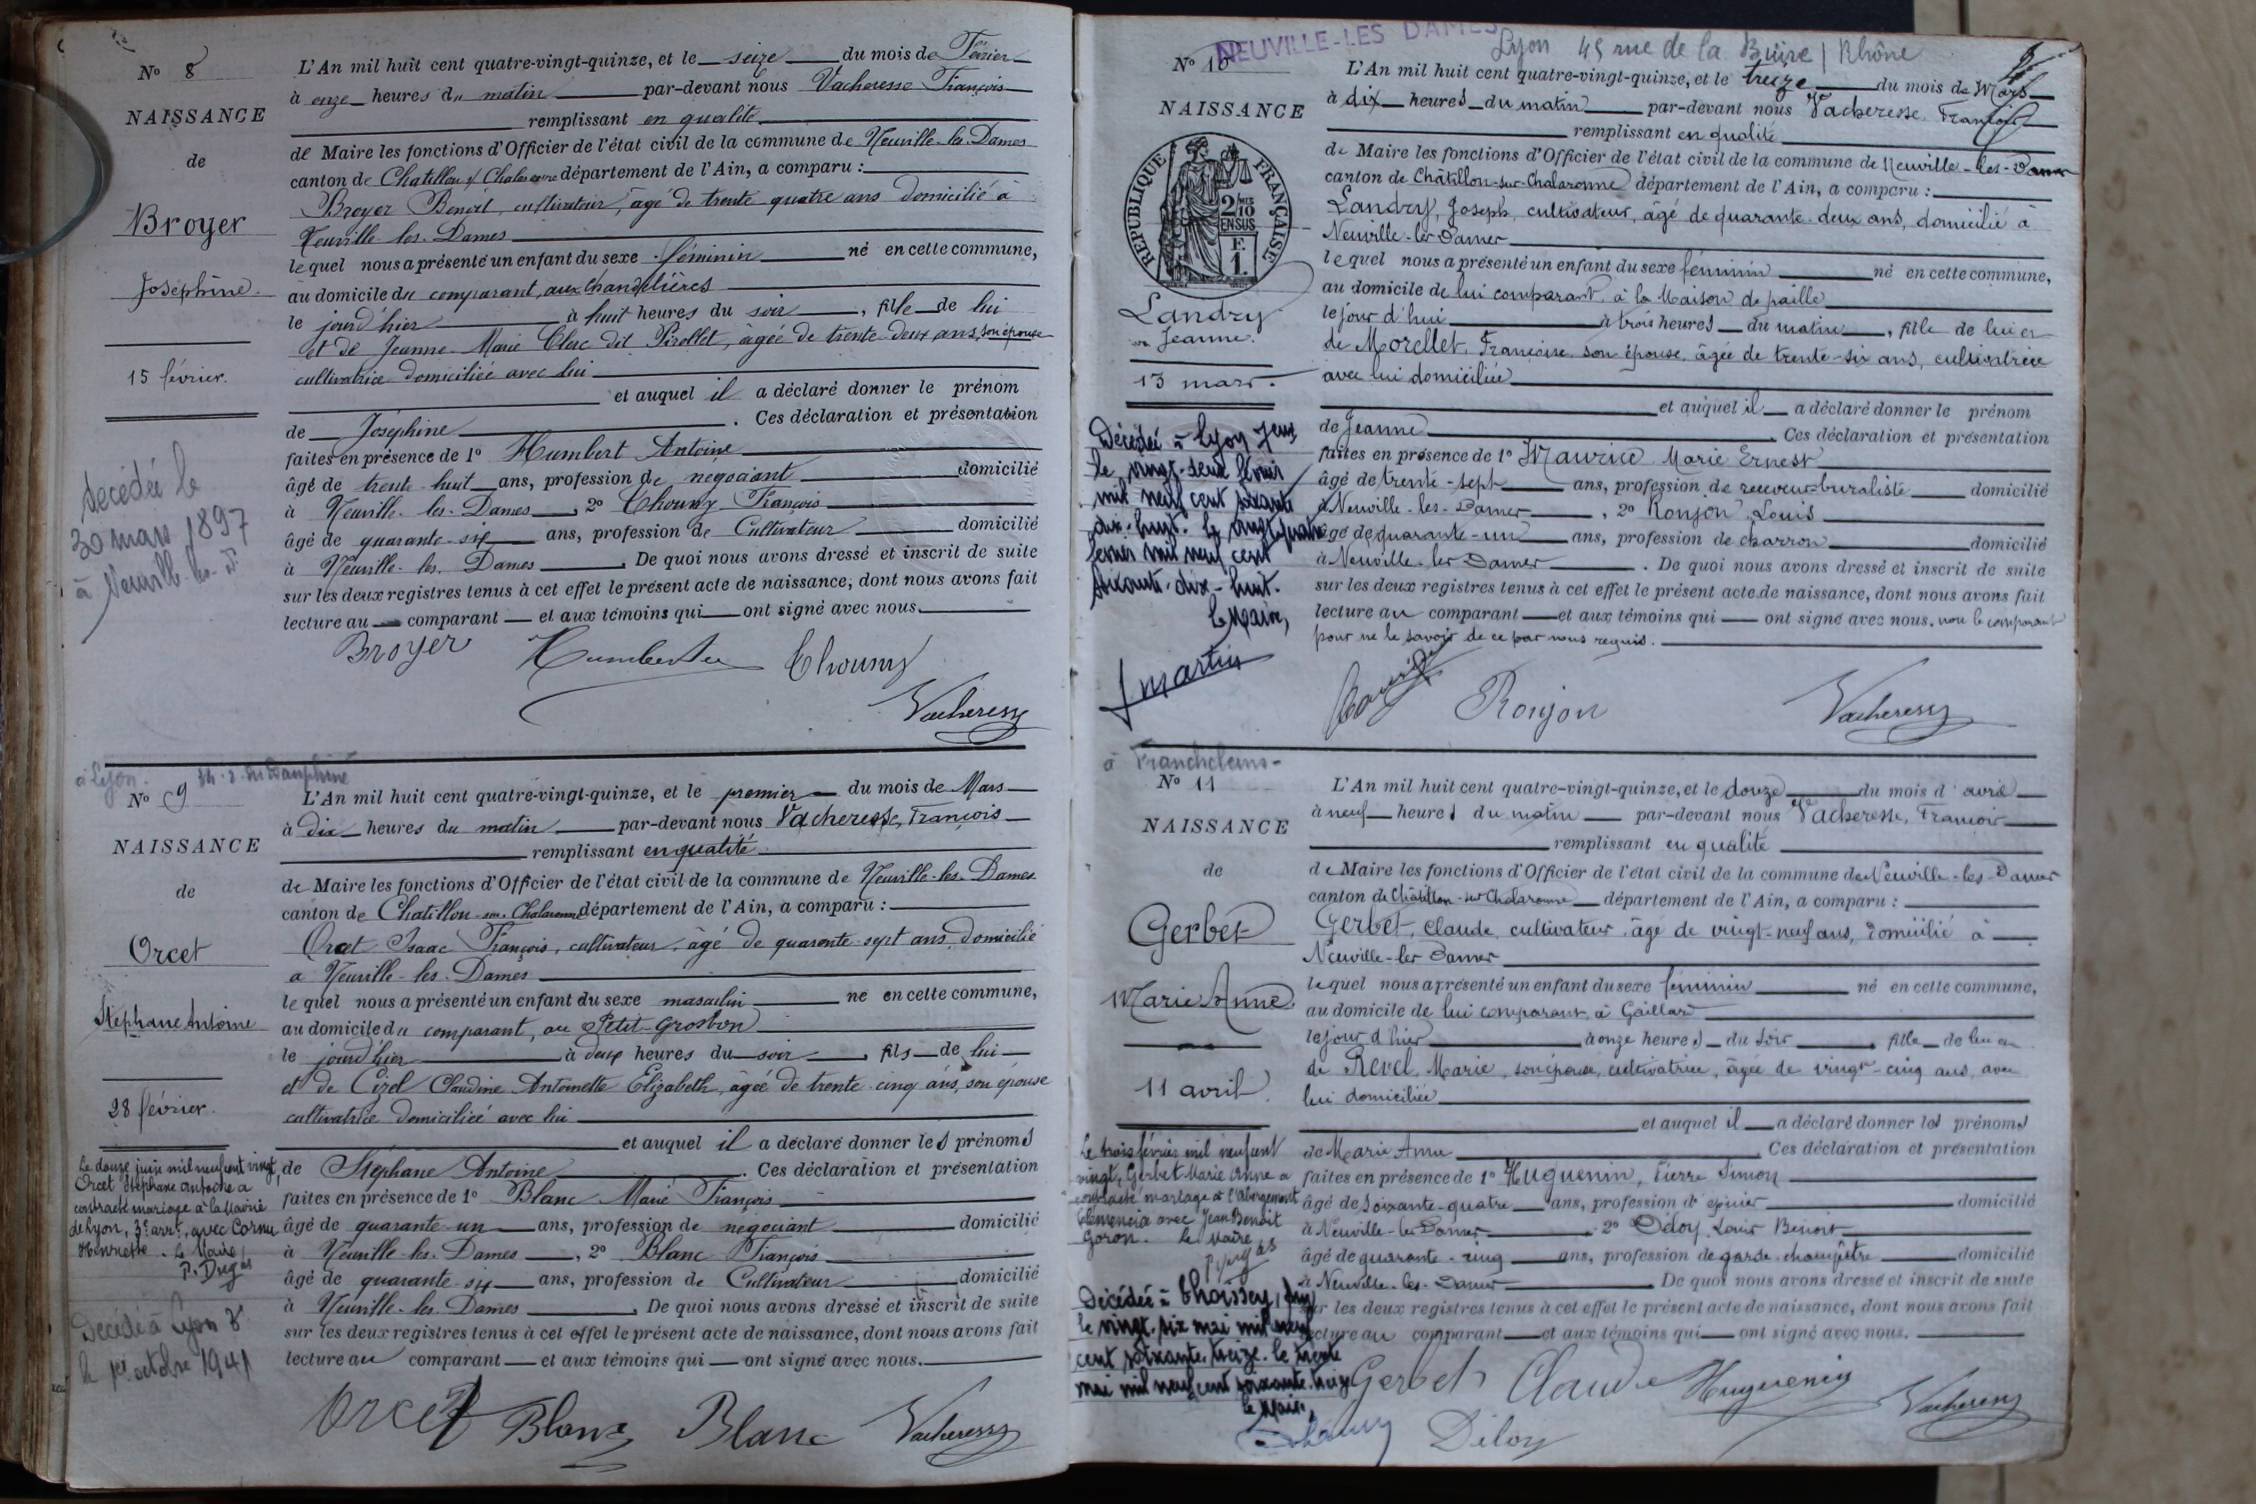 No 8
NAISSANCE
de
Broyer
Joséphine
15 février.
décédée le
30 mars 1897
à Neuville-les-D
L'An mil huit cent quatre-vingt-quinze, et le seize du mois de Février
à onze heures du matin par-devant nous Vacheresse François
remplissant en qualité
de Maire les fonctions d'Officier de l'état civil de la commune de Neuville-les-Dames
canton de Chatillon s/ Chalaronne département de l'Ain, a comparu :
Broyer Benoit, cultivateur, âgé de trente quatre ans domicilié à
Neuville-les-Dames
lequel nous a présenté un enfant du sexe féminin né en cette commune,
au domicile du comparant, aux Chandelières
le jourd'hier à huit heures du soir, fille de lui
et de Jeanne Marie Clerc dit Pirollet, âgée de trente-deux ans, son épouse
cultivatrice domiciliée avec lui
et auquel il a déclaré donner le prénom
de Joséphine. Ces déclaration et présentation
faites en présence de 1o Humbert Antoine
âgé de trente-huit ans, profession de negociant domicilié
à Neuville-les-Dames, 2o Chouny François
âgé de quarante-six ans, profession de Cultivateur domicilié
à Neuville-les-Dames. De quoi nous avons dressé et inscrit de suite
sur les deux registres tenus à cet effet le présent acte de naissance, dont nous avons fait
lecture au comparant et aux témoins qui ont signé avec nous.
Broyer Humbert Chouny
Vacheresse
à Lyon.
No 9
NAISSANCE
de
Orcet
Stéphane Antoine
28 février.
Le douze juin mil neuf cent vingt,
Orcet Stéphane Antoine a
contracté mariage à la Mairie
de Lyon, 3e arrt, avec Cornu
Henriette. Le Maire
P. Dugas
Décédé à Lyon 3e
le 1er octobre 1941
L'An mil huit cent quatre-vingt-quinze, et le premier du mois de Mars
à dix heures du matin par-devant nous Vacheresse, François
remplissant en qualité
de Maire les fonctions d'Officier de l'état civil de la commune de Neuville-les-Dames
canton de Chatillon-sur-Chalaronne département de l'Ain, a comparu :
Orcet Isaac François, cultivateur, âgé de quarante-sept ans, domicilié
à Neuville-les-Dames
lequel nous a présenté un enfant du sexe masculin né en cette commune,
au domicile du comparant, au Petit-Grosbon
le jourd'hier à deux heures du soir, fils de lui
et de Cizel Claudine Antoinette Elizabeth, âgée de trente-cinq ans, son épouse
cultivatrice domiciliée avec lui
et auquel il a déclaré donner les prénoms
de Stéphane Antoine. Ces déclaration et présentation
faites en présence de 1o Blanc Marie François
âgé de quarante-un ans, profession de negociant domicilié
à Neuville-les-Dames, 2o Blanc François
âgé de quarante-six ans, profession de Cultivateur domicilié
à Neuville-les-Dames. De quoi nous avons dressé et inscrit de suite
sur les deux registres tenus à cet effet le présent acte de naissance, dont nous avons fait
lecture au comparant et aux témoins qui ont signé avec nous.
Orcet Blanc Blanc Vacheresse
NEUVILLE-LES DAMES
Lyon 45 rue de la Buire / Rhône
No 10
NAISSANCE
REPUBLIQUE FRANÇAISE
2/10 EN SUS
F. 1.
Landry
Jeanne.
13 mars.
Décédée à Lyon 7eme
le vingt-deux février
mil neuf cent soixante
dix-huit. le vingt quatre
février mil neuf cent
soixante-dix-huit.
le Maire,
J Martin
L'An mil huit cent quatre-vingt-quinze, et le treize du mois de Mars
à dix heures du matin par-devant nous Vacheresse François
remplissant en qualité
de Maire les fonctions d'Officier de l'état civil de la commune de Neuville-les-Dames
canton de Châtillon-sur-Chalaronne département de l'Ain, a comparu :
Landry, Joseph, cultivateur, âgé de quarante-deux ans, domicilié à
Neuville-les-Dames
lequel nous a présenté un enfant du sexe féminin né en cette commune,
au domicile de lui comparant, à la Maison de paille
le jour d'hui à trois heures du matin, fille de lui et
de Morellet, Françoise son épouse, âgée de trente-six ans, cultivatrice
avec lui domiciliée
et auquel il a déclaré donner le prénom
de Jeanne. Ces déclaration et présentation
faites en présence de 1o Maurice Marie Ernest
âgé de trente-sept ans, profession de receveur-buraliste domicilié
à Neuville-les-Dames, 2o Ronjon Louis
âgé de quarante-un ans, profession de charron domicilié
à Neuville-les-Dames. De quoi nous avons dressé et inscrit de suite
sur les deux registres tenus à cet effet le présent acte de naissance, dont nous avons fait
lecture au comparant et aux témoins qui ont signé avec nous, non le comparant
pour ne le savoir de ce par nous requis.
Ronjon Vacheresse
à Francheleins
No 11
NAISSANCE
de
Gerbet
Marie Anne
11 avril.
Le trois février mil neuf cent
vingt, Gerbet Marie Anne a
contracté mariage à l'Abergement
Clémencia avec Jean Benoit
Goron. le Maire
P. Dugas
Décédée à Thoissey, Ain
le vingt-six mai mil neuf
cent soixante-treize. le trente
mai mil neuf cent soixante-treize
le Maire,
L'An mil huit cent quatre-vingt-quinze, et le douze du mois d'avril
à neuf heures du matin par-devant nous Vacheresse, François
remplissant en qualité
de Maire les fonctions d'Officier de l'état civil de la commune de Neuville-les-Dames
canton de Châtillon-sur-Chalaronne département de l'Ain, a comparu :
Gerbet, Claude, cultivateur, âgé de vingt-neuf ans, domicilié à
Neuville-les-Dames
lequel nous a présenté un enfant du sexe féminin né en cette commune,
au domicile de lui comparant, à Gaillard
le jour d'hier à onze heures du soir, fille de lui et
de Revel, Marie, son épouse, cultivatrice, âgée de vingt-cinq ans, avec
lui domiciliée
et auquel il a déclaré donner les prénoms
de Marie Anne. Ces déclaration et présentation
faites en présence de 1o Huguenin, Pierre Simon
âgé de soixante-quatre ans, profession d'épicier domicilié
à Neuville-les-Dames 2o Déloy Louis Benoit
âgé de quarante-cinq ans, profession de garde-champêtre domicilié
à Neuville-les-Dames. De quoi nous avons dressé et inscrit de suite
sur les deux registres tenus à cet effet le présent acte de naissance, dont nous avons fait
lecture au comparant et aux témoins qui ont signé avec nous.
Gerbet Claude Huguenin Vacheresse
Déloy